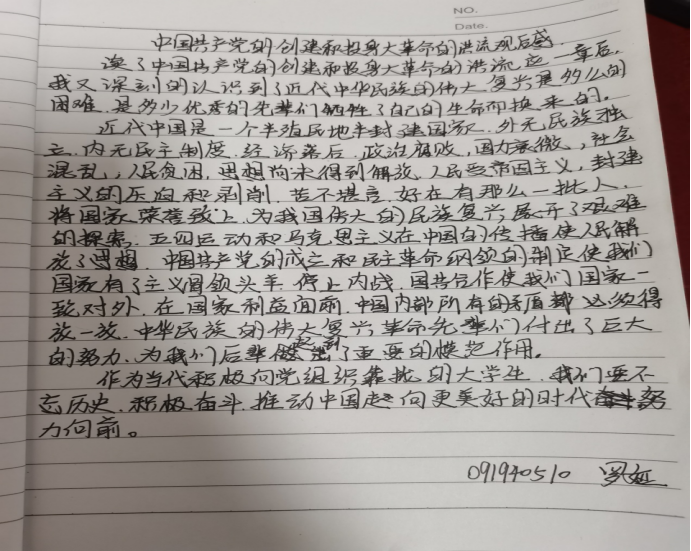 NO.
Date.
中国共产党的创建和投身大革命的洪流观后感
读了中国共产党的创建和投身大革命的洪流这一章后,
我又深刻的认识到了近代中华民族的伟大复兴是多么的
困难,是多少优秀的先辈们牺牲了自己的生命而换来的。
近代中国是一个半殖民地半封建国家,外无民族独
立,内无民主制度,经济落后,政治腐败,国力衰微,社会
混乱,人民贫困,思想尚未得到解放,人民受帝国主义,封建
主义的压迫和剥削,苦不堪言,好在有那么一批人,
将国家荣誉致上,为我国伟大的民族复兴展开了艰难
的探索,五四运动和马克思主义在中国的传播使人民解
放了思想,中国共产党的成立和民主革命纲领的制定使我们
国家有了主义冒领头羊,停止内战,国共合作使我们国家一
致对外,在国家利益面前,中国内部所有的矛盾都必须得
放一放,中华民族的伟大复兴革命先辈们付出了巨大
的努力,为我们后辈做起到了重要的模范作用。
作为当代积极向党组织靠拢的大学生,我们要不
忘历史,积极奋斗,推动中国走向更美好的时代奋斗努
力向前。
091940510